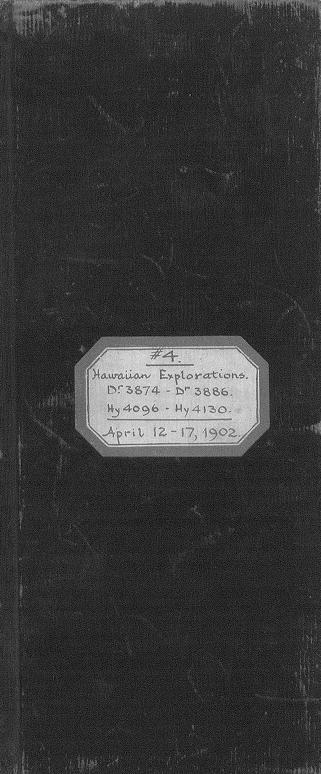 #4.
Hawaiian Explorations.
Dr 3874 - Dr 3886.
Hy 4096 - Hy 4130.
April 12-17, 1902.